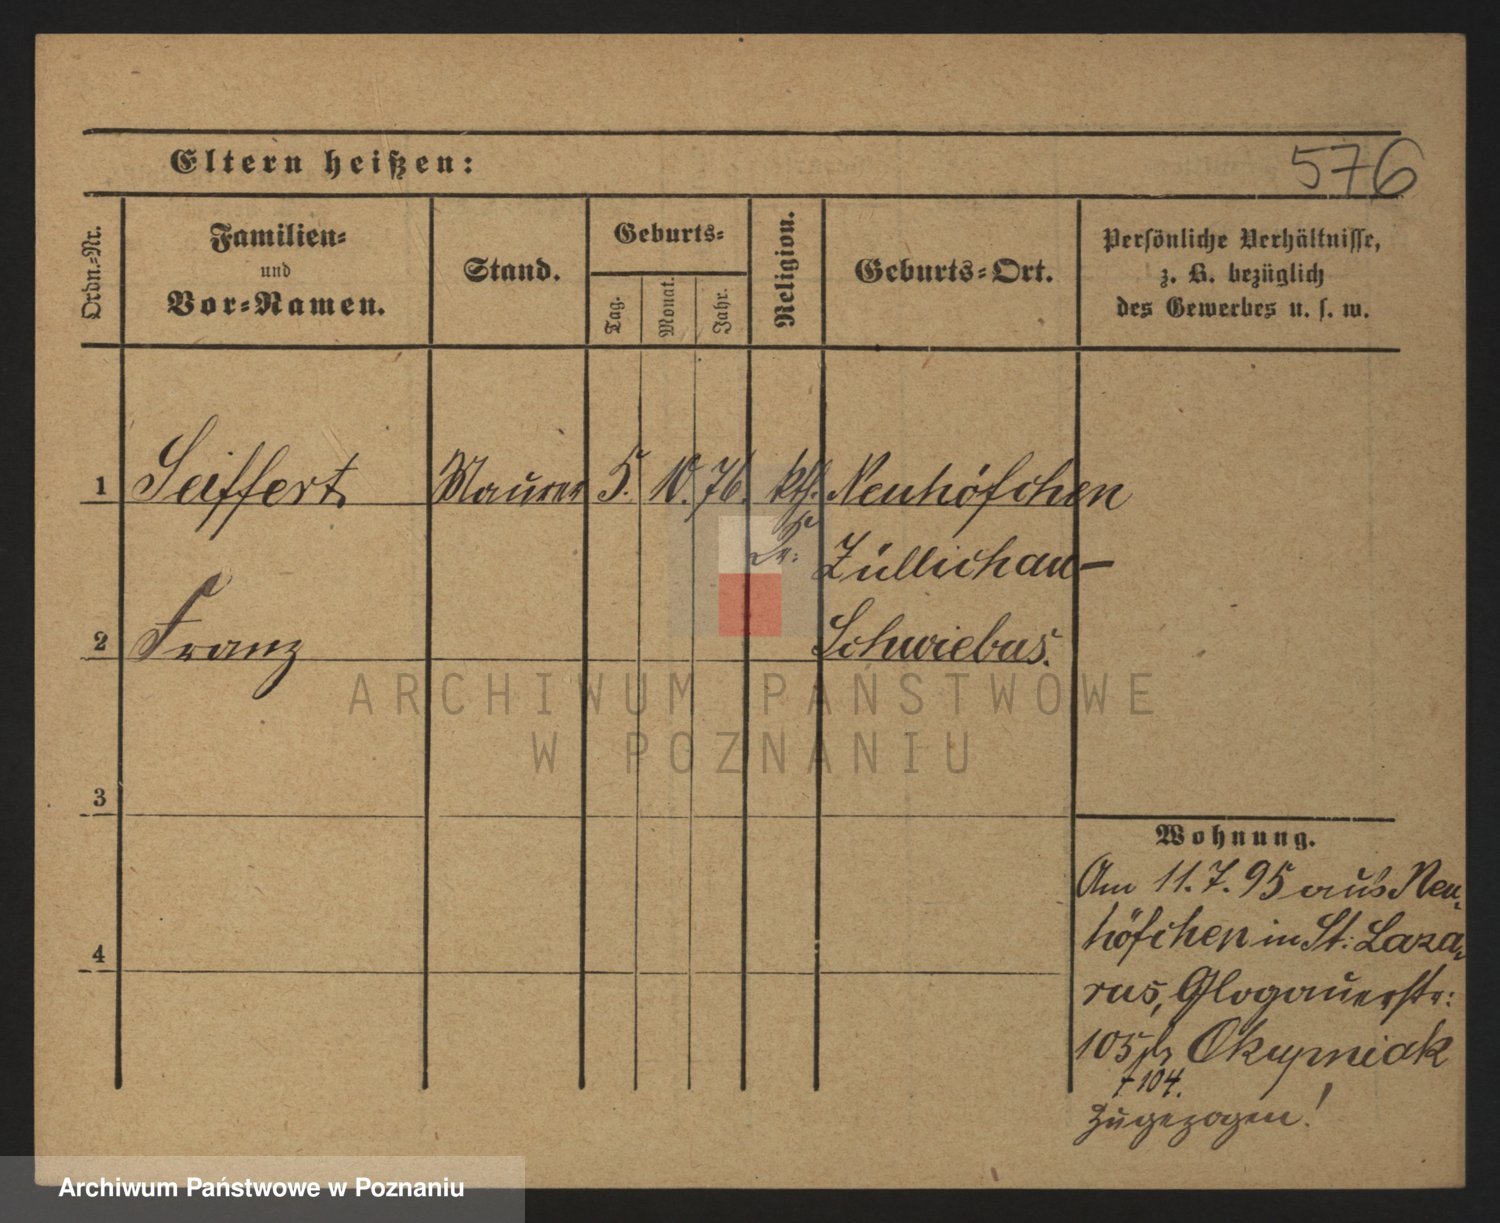 Eltern heißen:
576
Ordn.-Nr.
Familien-
und
Vor-Namen.
Stand.
Geburts-
Tag.
Monat.
Jahr.
Religion.
Geburts-Ort.
Persönliche Verhältnisse,
z. B. bezüglich
des Gewerbes u. s. w.
1 Seiffert Maurer 5. 10. 76. kth. Neuhöfchen
Kr: Züllichau-
2 Franz Schwiebus.
ARCHIWUM PAŃSTWOWE
W POZNANIU
3
Wohnung.
Am 11.7.95 aus Neu-
höfchen in St. Laza-
4
rus, Glogauerstr:
105 Okupniak
+ 104.
Zugezogen!
Archiwum Państwowe w Poznaniu